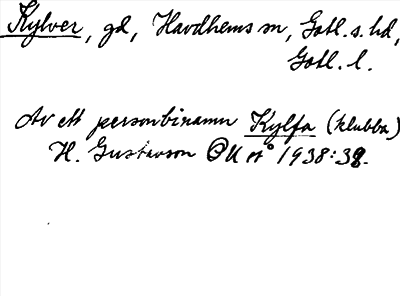 Kylver, gd, Havdhems sn, Gotl. s. hd,
Gotl. l.
Av ett personbinamn Kylfa (klubba)
H. Gustavson OUÅ 1938:38.